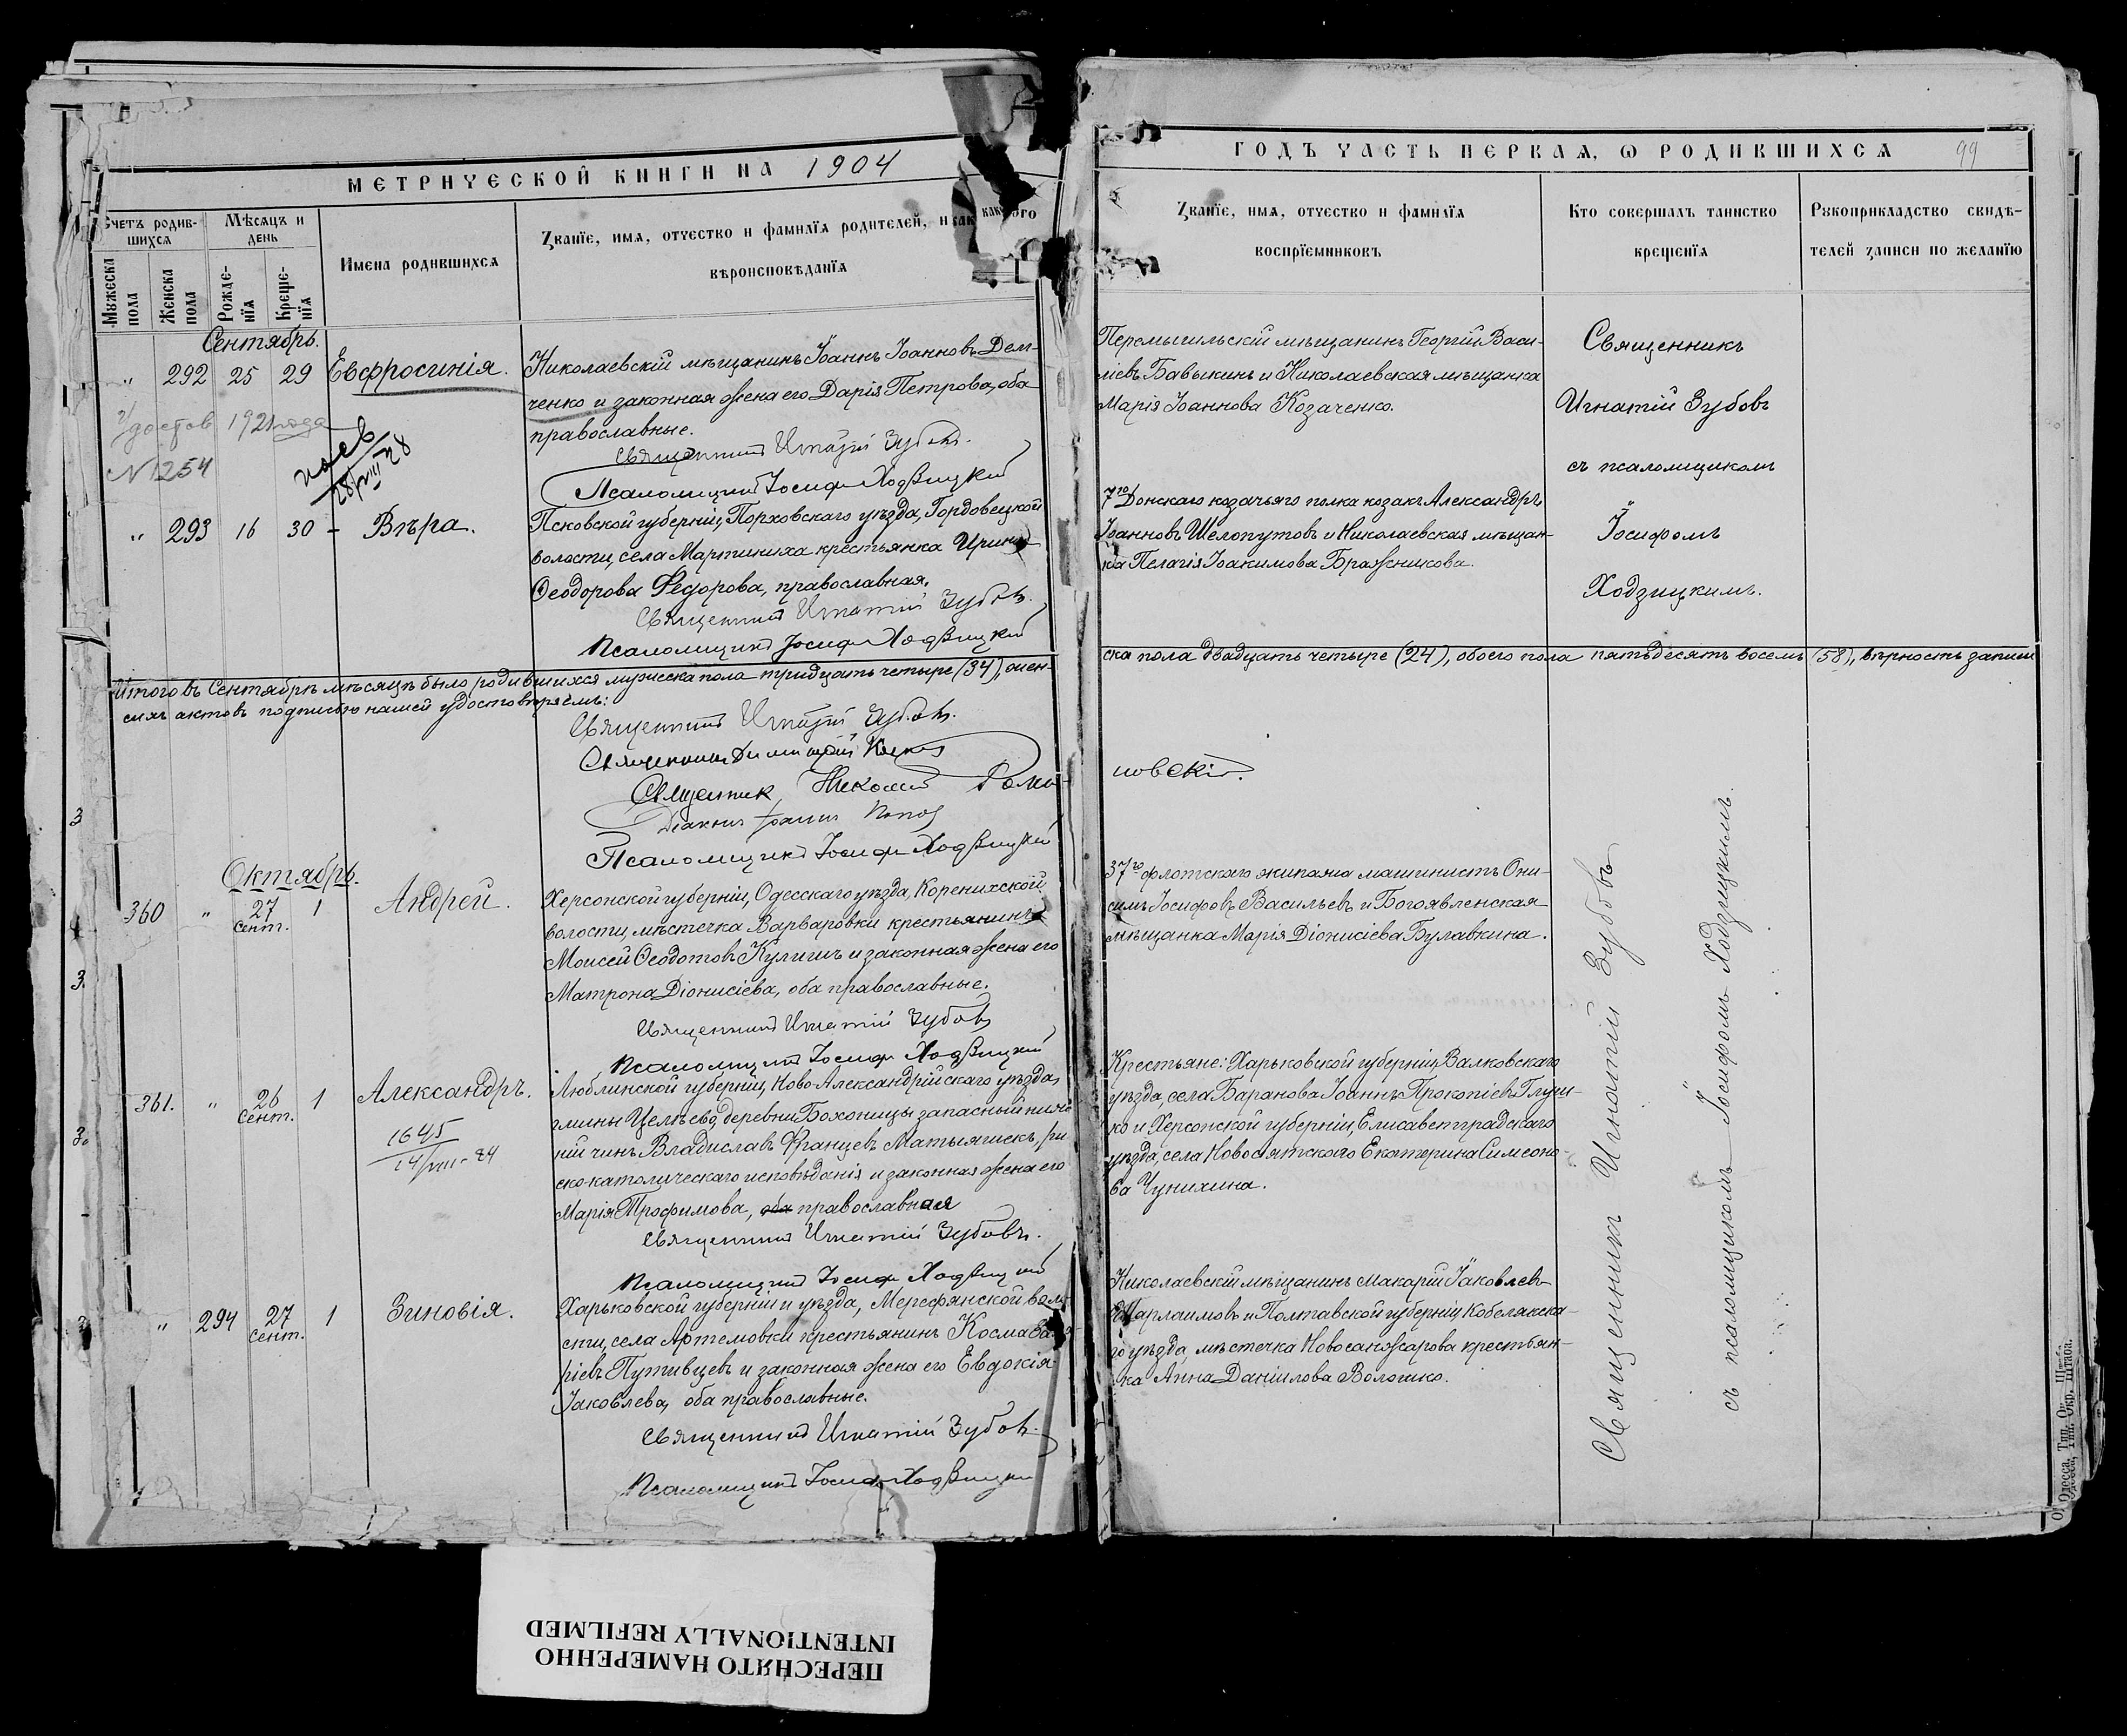 МЕТРИЧЕСКОЙ КНИГИ НА 1904
Счетъ родив-
шихся
Мѣсяцъ и
день
Мужеска
пола
Женска
пола
Рожде-
нїя
Креще-
нїя
Имена родившихся
Званїе, имя, отчество и фамилїя родителей, и какого
вѣроисповѣданїя
Сентябрь.
" 292 25 29 Евфросинія.
Николаевскій мѣщанинъ Іоаннъ Іоанновъ Дем-
ченко и законная жена его Дарія Петрова, оба
православные.
Священникъ Игнатій Зубовъ.
Псаломщикъ Іосифъ Ходзицкій
Удостов 1921 года
№ 1254
28/VIII 28
" 293 16 30 - Вѣра.
Псковской губерніи, Порховскаго уѣзда, Гордовецкой
волости, села Мартиниха крестьянка Ирина
Ѳеодорова Федорова, православная.
Священникъ Игнатій Зубовъ.
Псаломщикъ Іосифъ Ходзицкій
Итого въ Сентябрѣ мѣсяцѣ было родившихся мужеска пола тридцать четыре (34), жен-
сихъ актовъ подписью нашей удостовѣряемъ:
Священникъ Игнатій Зубовъ.
Священникъ Димитрій
Священник Николай Рома-
Діаконъ Іоаннъ Попов
Псаломщикъ Іосифъ Ходзицкій
Октябрь.
360 " 27 Сент. 1 Андрей.
Херсонской губерніи, Одесскаго уѣзда, Коренихской
волости, мѣстечка Варваровки крестьянинъ
Моисей Ѳеодотовъ Кулишъ и законная жена его
Матрона Діонисіева, оба православные.
Священникъ Игнатій Зубовъ
Псаломщикъ Іосифъ Ходзицкій
361. " 26 Сент. 1 Александръ.
1645
24/VIII-84
Люблинской губерніи, Ново-Александрійскаго уѣзда,
гмины Целѣево, деревни Бохоницы запасный ниж
ній чинъ Владиславъ Францевъ Матыяшекъ, ри
ско-католическаго исповѣданія и законная жена его
Марія Трофимова, оба православная
Священникъ Игнатій Зубовъ.
Псаломщикъ Іосифъ Ходзицкій
" 294 27 Сент. 1 Зиновія.
Харьковской губерніи и уѣзда, Мерефянской воло-
сти, села Артемовки крестьянинъ Косма
ріевъ Путивцевъ и законная жена его Евдокія
Іаковлева, оба православные.
Священникъ Игнатій Зубовъ.
Псаломщикъ Іосифъ Ходзицкій
ГОДЪ ЧАСТЬ ПЕРВАЯ, Ѡ РОДИВШИХСЯ 99
Званїе, имя, отчество и фамилїя
воспрїемниковъ
Кто совершалъ таинство
крещенїя
Рукоприкладство свидѣ-
телей записи по желанїю
Перемышльскій мѣщанинъ Георгій Васи-
ліевъ Бавыкинъ и Николаевская мѣщанка
Марія Іоаннова Козаченко.
7го Донскаго козачьяго полка козакъ Александръ
Іоанновъ Шелопутовъ и Николаевская мѣщан-
ка Пелагія Іоакимова Бражникова.
Священникъ
Игнатій Зубовъ
съ псаломщикомъ
Іосифомъ
Ходзицкимъ.
ска пола двадцать четыре (24), обоего пола пятьдесятъ восемь (58), вѣрность записи
новскій.
37го флотскаго экипажа машинистъ Они-
симъ Іосифовъ Васильевъ и Богоявленская
мѣщанка Марія Діонисіева Булавкина.
Крестьяне: Харьковской губерніи, Валковскаго
уѣзда, села Баранова Іоаннъ Прокопіевъ Глуш-
ко и Херсонской губерніи, Елисаветградскаго
уѣзда, села Новосвятскаго Екатерина Симеоно-
ва Чунихина.
Николаевскій мѣщанинъ Макарій Іаковлевъ
Шарлаимовъ и Полтавской губерніи, Кобелякска-
го уѣзда, мѣстечка Новосанжарова крестьян-
ка Анна Даніилова Волошко.
Священникъ Игнатій Зубовъ
съ псаломщикомъ Іосифомъ Ходзицкимъ.
Одесса, Тип. Окр. Штаба.
ПЕРЕСНЯТО НАМЕРЕННО
INTENTIONALLY REFILMED